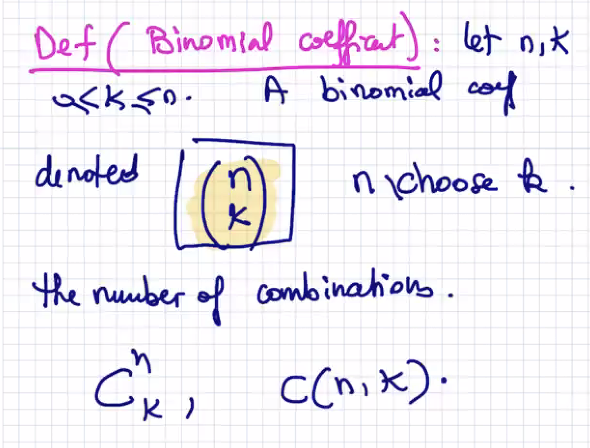 Def ( Binomial coefficient ) : let n, k
0 ≤ k ≤ n. A binomial coef
denoted (n k) n \choose k .
the number of combinations .
C^n_k , C(n, k) .